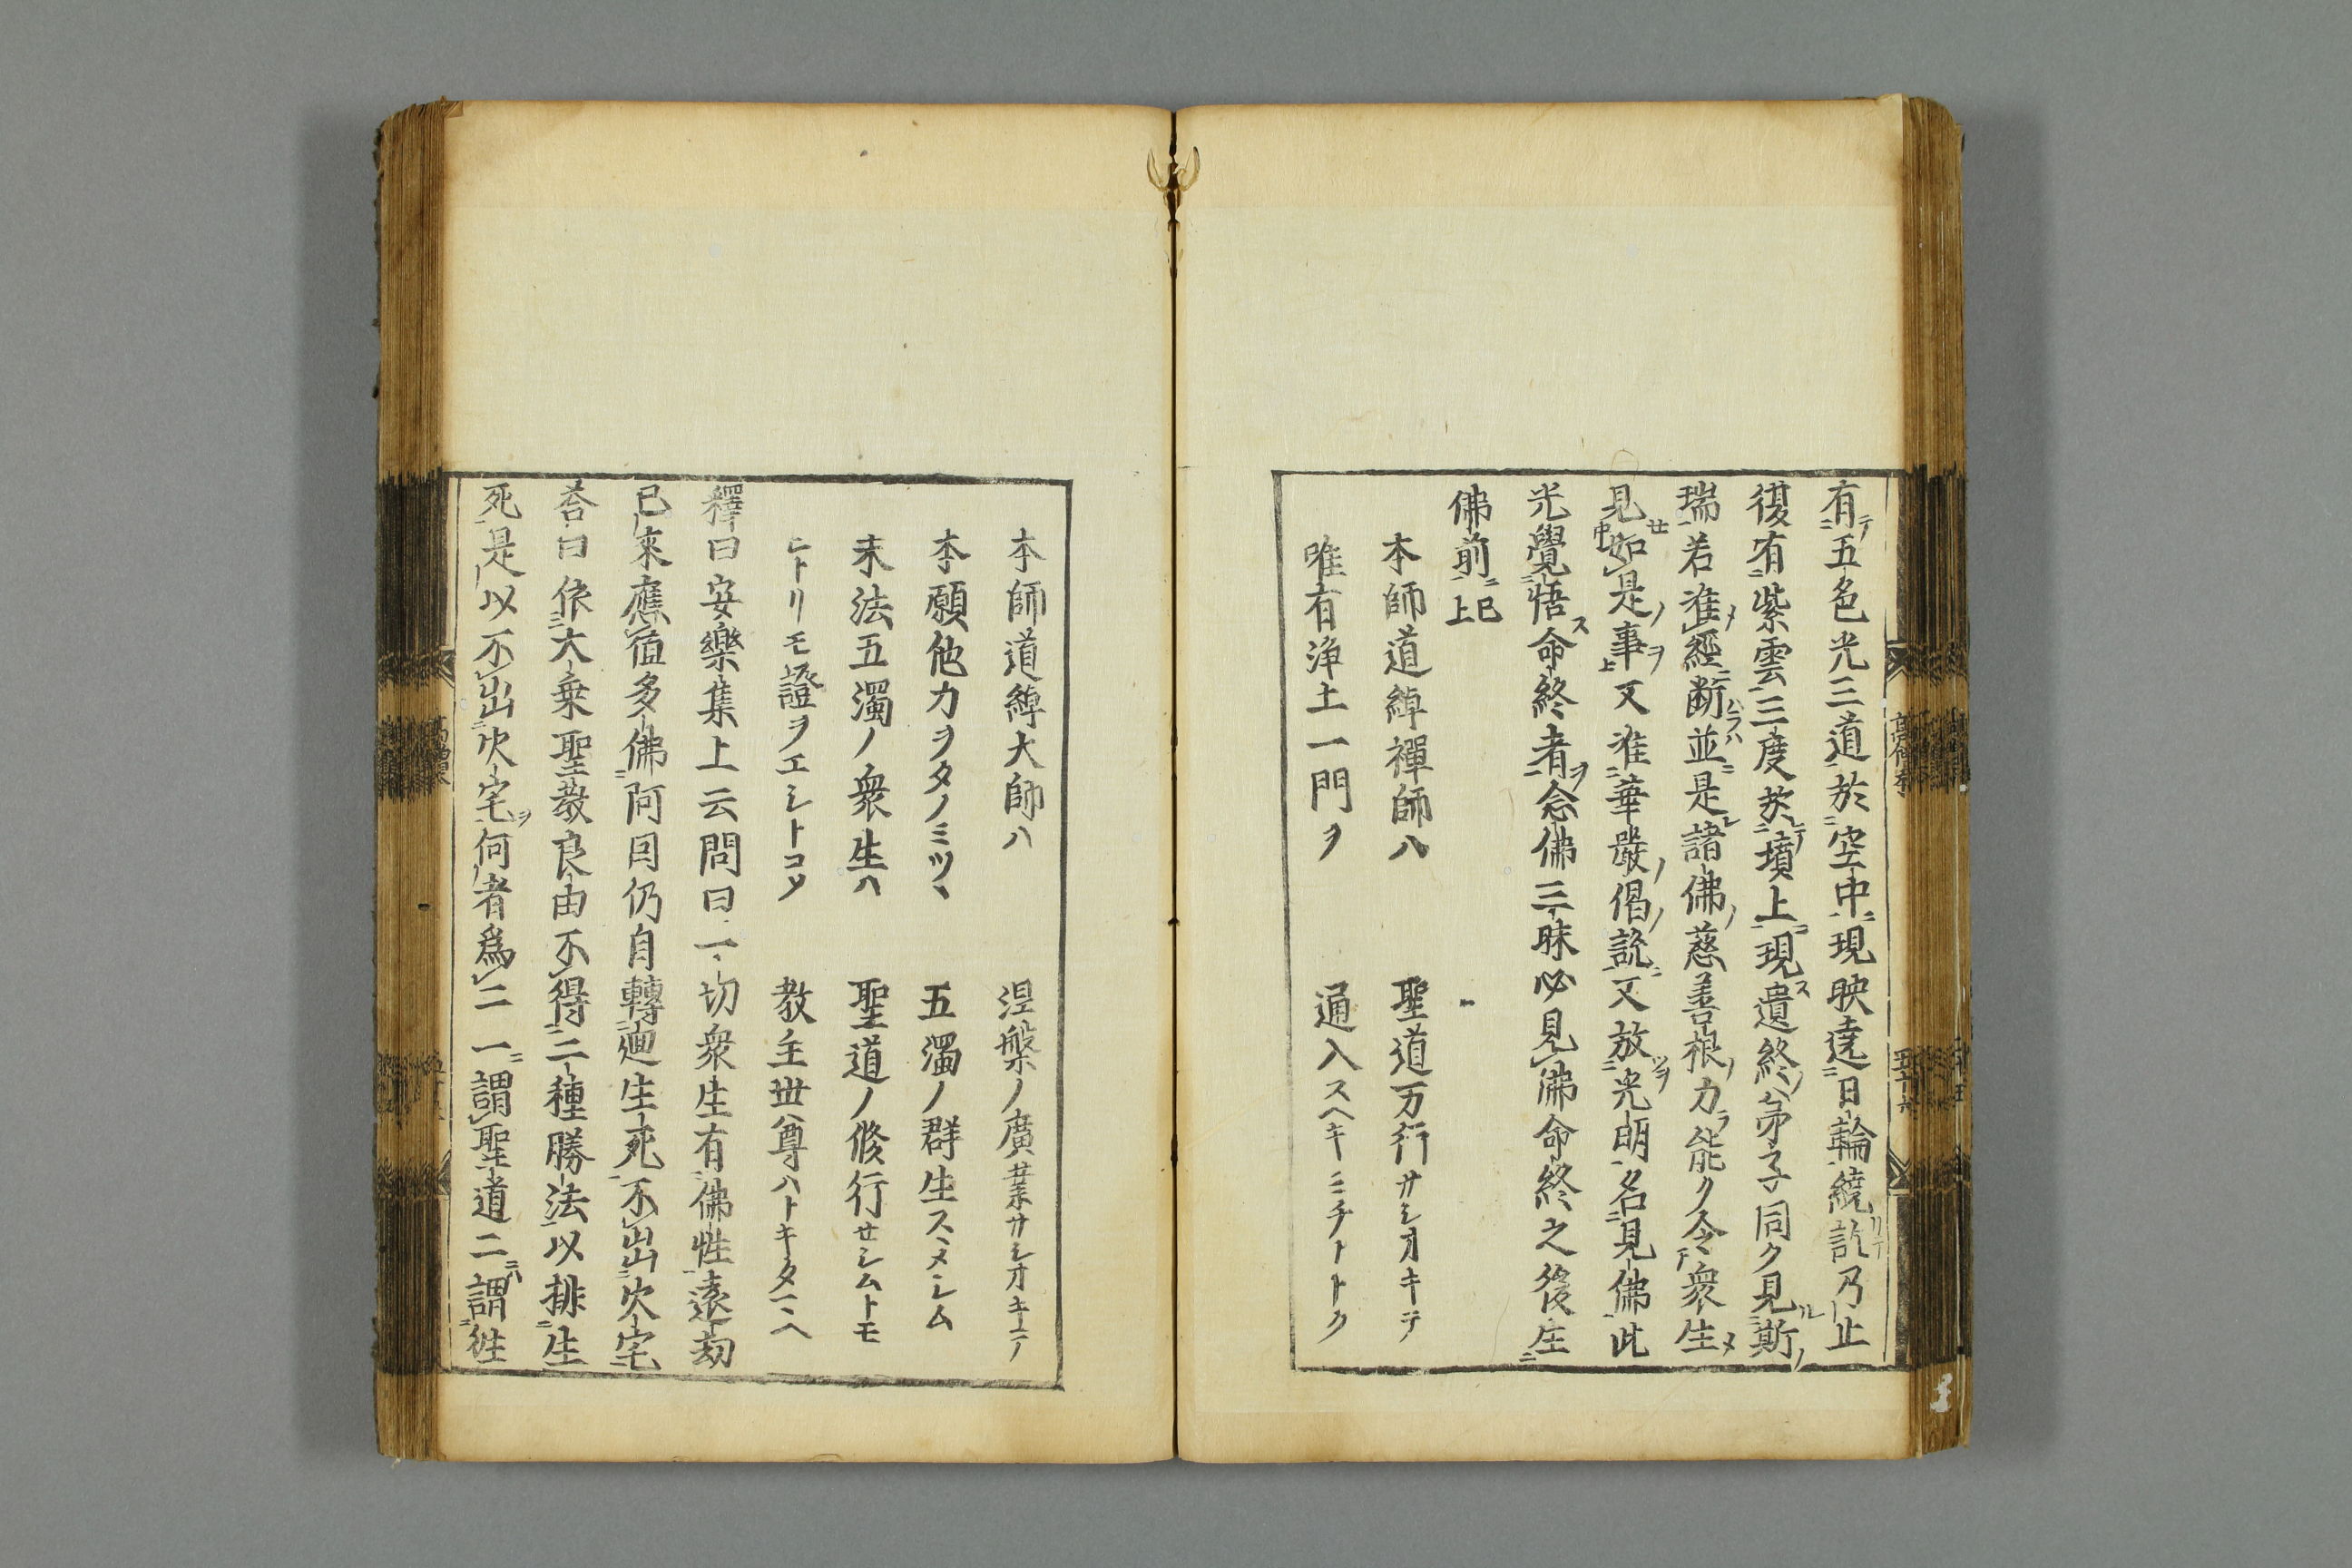 有五色光三道於空中現映遶日輪繞訖乃止
復有紫雲三度於墳上現遺終弟子同ク見斯
瑞若准經斷並是諸佛慈善根力能ク令衆生
見如是事又准華嚴偈説又放光明名見佛此
光覺悟命終者念佛三昧必見佛命終之後生
佛前已上
本師道綽禪師ハ 聖道万行サシオキテ
唯有淨土一門ヲ 通入スヘキミチトトク
本師道綽大師ハ 涅槃ノ廣業サシオキテ
本願他力ヲタノミツヽ 五濁ノ群生スヽメシム
末法五濁ノ衆生ハ 聖道ノ修行セシムトモ
ヒトリモ證ヲエシトコソ 教主世尊ハトキタマヘ
釋曰安樂集上云問曰一切衆生有佛性遠劫
已來應値多佛阿因仍自轉廻生死不出火宅
答曰依大乗聖教良由不得二種勝法以排生
死是以不出火宅何者爲二一謂聖道二謂往